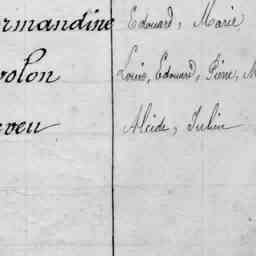 ermandine Edouard, Marie
olon Louis, Edouard, Pierre, M
eveu Alcide, Julien